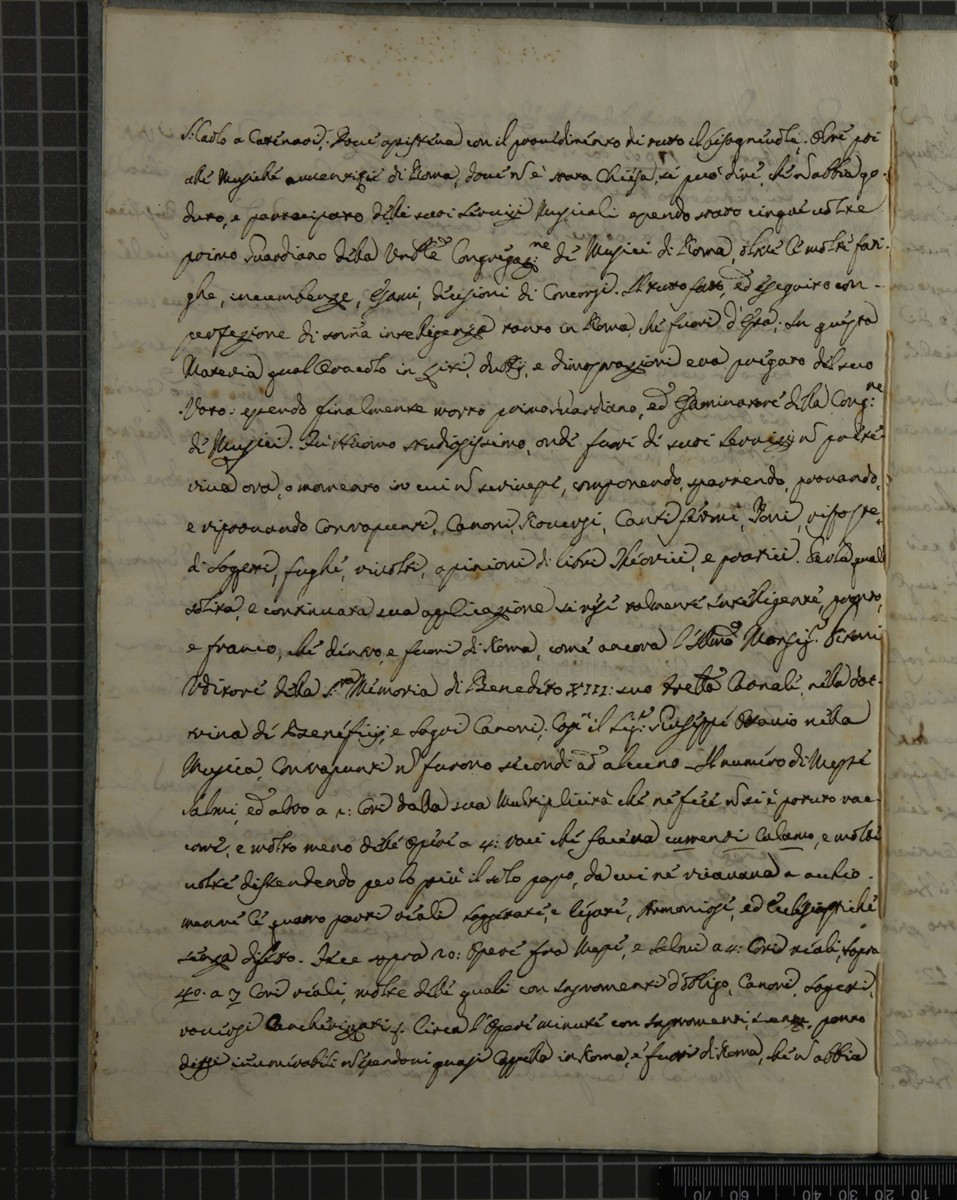 S: Carlo a Catenari; dove assisteva con il provedimento di tutto il bisognevole. Oltre poi
alle Musiche avventizie di Roma, dove ñ è stata Chiesa, si può dire, che ñ abbia go-
duto, e partecipato delli suoi servizi Musicali essendo stato cinque volte
primo Guardiano della Ven:le Congregaz:ne de Musici di Roma, oltre le molte fati-
ghe, incumbenze, Esami, decisioni di Concorsi. Il tutto fatto, ed esseguito con
perfezzione di somma intelligenza tanto in Roma, che fuori d'Essa; In questa
Materia qual Oracolo in Liti, dubbij, e dimostrazioni era pregato del suo
Voto: essendo finalmente morto primo Guardiano, ed Esaminatore della Cong:ne
de Musici. Fu Huomo studiosissimo, onde fuori de suoi servizij ñ perdè
viva ora, o momento in cui ñ scrivesse, componendo, spartendo, provando,
e riprovando Contrapunti, Canoni, Roversi, Canti fermi, Toni, risposte
di Soggetti, fughe, rivolti, opinioni di libri Theorici, e prattici. Per la quale
oltra, e continuata sua applicazione si rese talmente intelligente, pronto,
e franco, che dentro, e fuori di Roma, come ancora l'Ill:mo Monsig:r Fermi
Uditore della S:ta Memoria di Benedetto XIII: suo fratello Carnale, nella dot-
trina de Beneficij, e Sagri Canoni; Così il Sig:r Giuseppe Ottavio nella
Musica, Contrapunti ñ furono secondi ad alcuno. Il numero di Messe
Salmi, ed altro a 2: Cori dalla sua Multiplicità che ne fece ñ si è potuto rac-
corre, e molto meno delle Opere a 4: Voci che faceva currenti Calamo, e molte
volte distendendo per lo più il solo basso, da cui ne ricavava a occhio
mente le quattro parti reali soggettate, e legate, Armoniose, ed Ecclesiastiche
senza difetto. Fece sopra 20: Opere fra Messe, e Salmi a 4: Cori reali, sopra
40. a 3 Cori reali, molte delle quali con Instromenti d'obligo, Canoni, Soggetti,
roversi Cancherizzati &. Circa l'Opere minute con Instromenti, e senza, ponno
dirsi innumerabili ñ essendovi quasi Cappella in Roma, e fuori di Roma, che ñ abbia